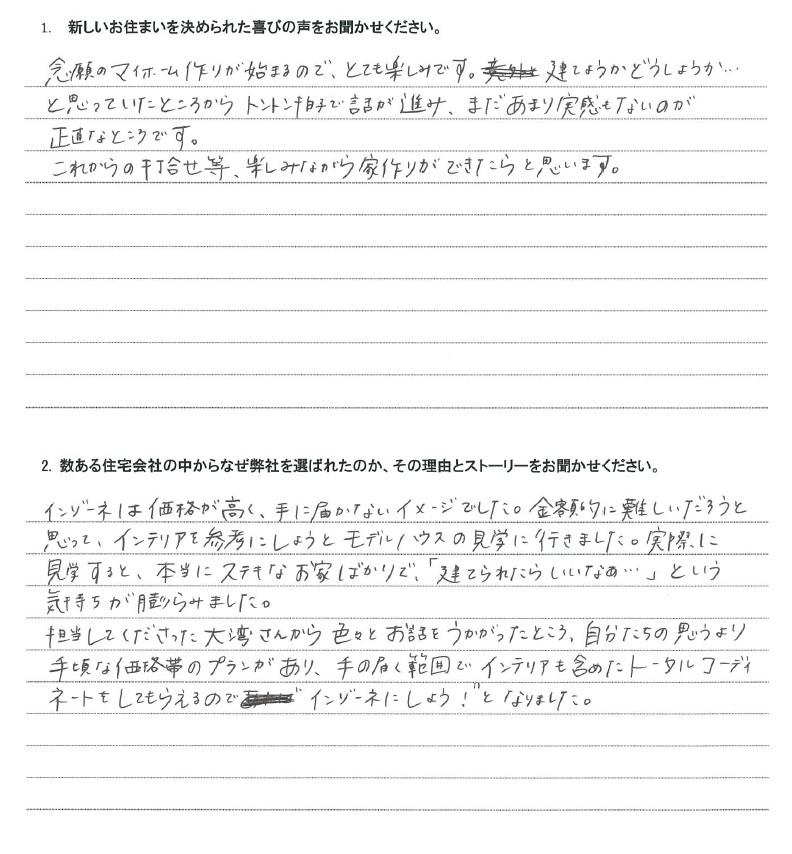 1. 新しいお住まいを決められた喜びの声をお聞かせください。
念願のマイホーム作りが始まるので、とても楽しみです。建てようかどうしようか…
と思っていたところからトントン拍子で話が進み、まだあまり実感もないのが
正直なところです。
これからの打合せ等、楽しみながら家作りができたらと思います。
2. 数ある住宅会社の中からなぜ弊社を選ばれたのか、その理由とストーリーをお聞かせください。
インゾーネは価格が高く、手に届かないイメージでした。金額的に難しいだろうと
思って、インテリアを参考にしようとモデルハウスの見学に行きました。実際に
見学すると、本当にステキなお家ばかりで、「建てられたらいいなぁ…」という
気持ちが膨らみました。
担当してくださった大湾さんから色々とお話をうかがったところ、自分たちの思うより
手頃な価格帯のプランがあり、手の届く範囲でインテリアも含めたトータルコーディ
ネートをしてもらえるので"インゾーネにしよう!"となりました。